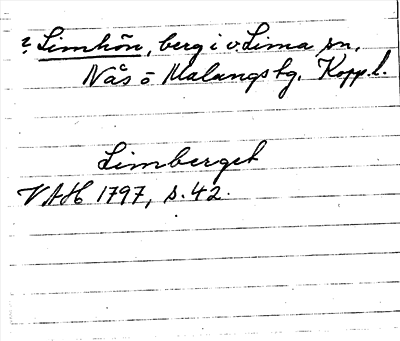 ? Limhön, berg i v. Lima sn,
Nås o Malungs tg. Kopp.l.
Limberget
VAH 1797, s. 42.